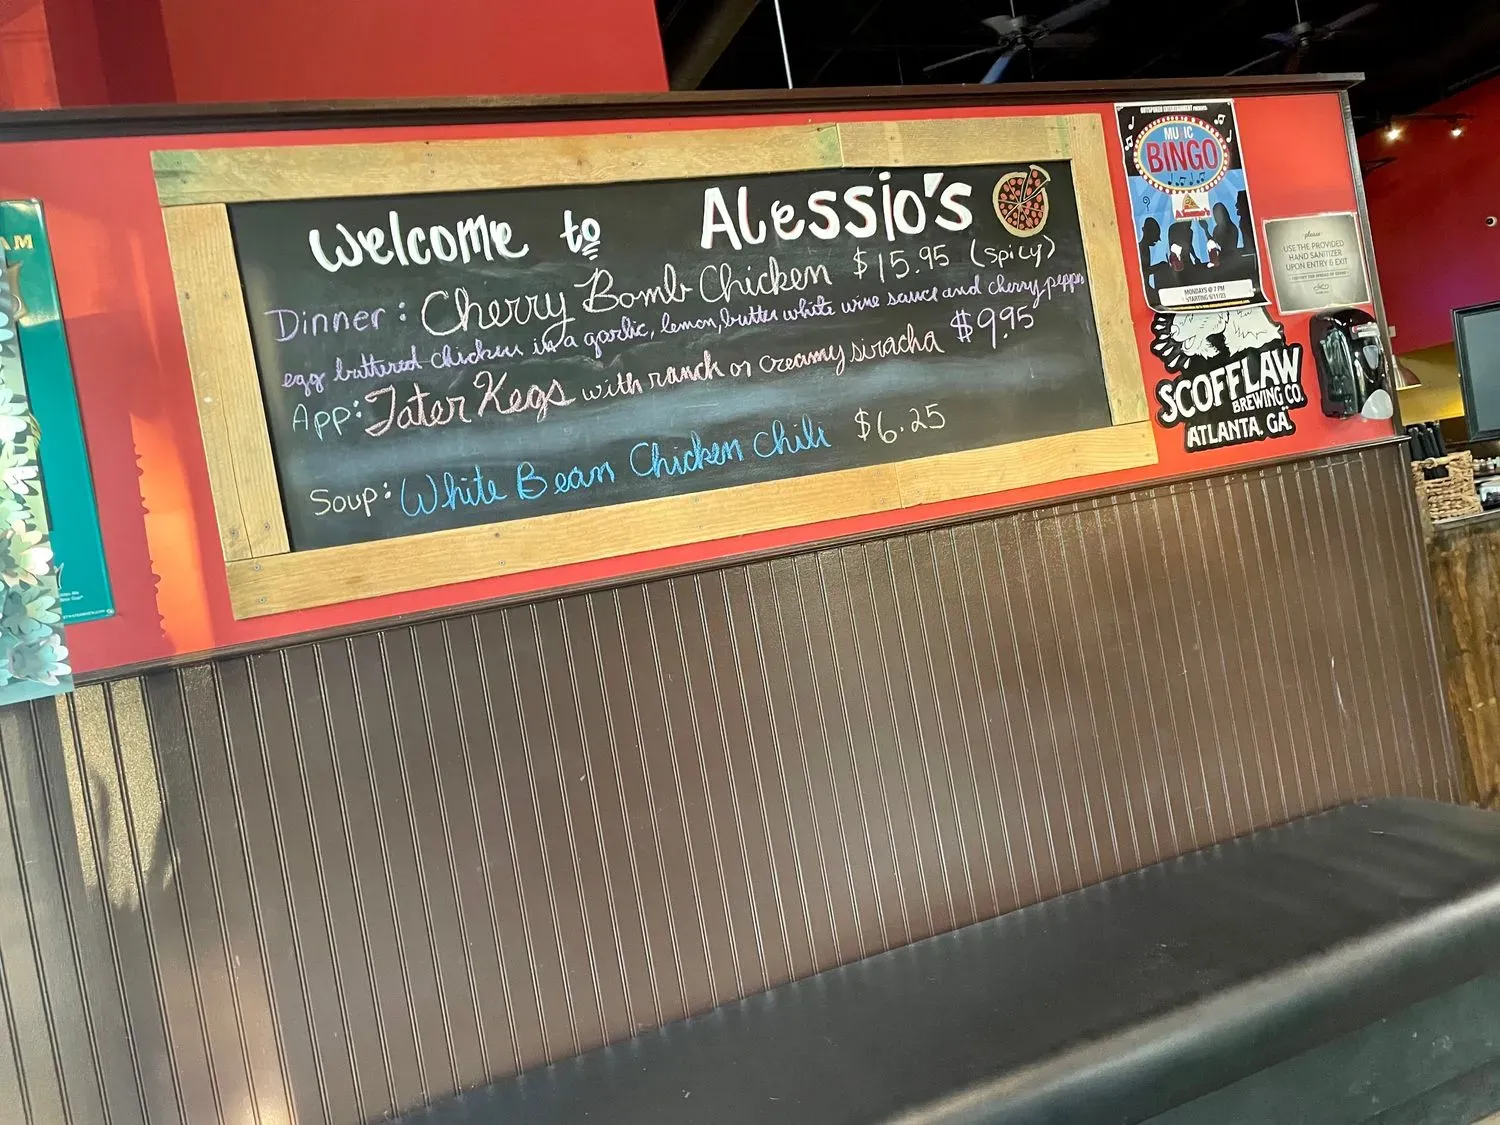 Welcome to Alessio's
Dinner: Cherry Bomb Chicken $15.95 (spicy)
egg battered chicken in a garlic, lemon, butter white wine sauce and cherry peppers
App: Tater Kegs with ranch or creamy siracha $9.95
Soup: White Bean Chicken Chili $6.25
AM
OUTSPOKEN ENTERTAINMENT PRESENTS:
MUSIC
BINGO
MONDAYS @ 7 PM
STARTING 9/11/23
please
USE THE PROVIDED
HAND SANITIZER
UPON ENTRY & EXIT
SCOFFLAW
BREWING CO.
ATLANTA, GA.